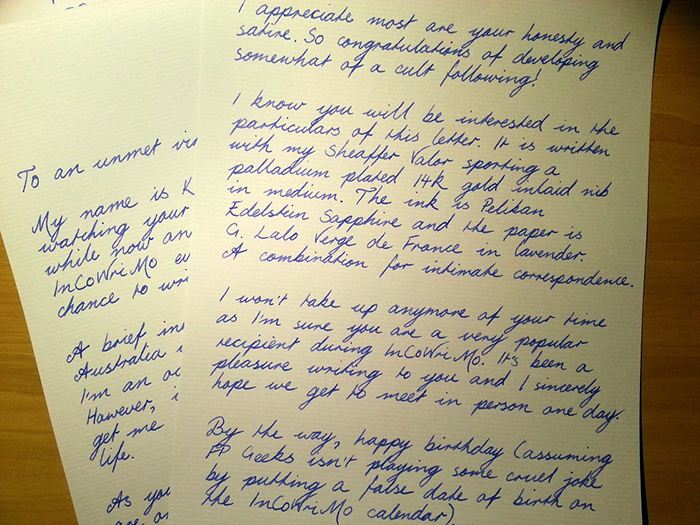 To an unmet
My name is K
watching your
while now an
InCoWriMo
chance to wri
A brief in
Australia
I'm an
However, i
get me
life.
As you
I appreciate most are your honesty and
satire. So congratulations of developing
somewhat of a cult following!
I know you will be interested in the
particulars of this letter. It is written
with my Sheaffer Valor sporting a
palladium plated 14k gold inlaid nib
in medium. The ink is Pelikan
Edelstein Sapphire and the paper is
G. Lalo Verge de France in lavender.
A combination for intimate correspondence.
I won't take up anymore of your time
as I'm sure you are a very popular
recipient during InCoWriMo. It's been a
pleasure writing to you and I sincerely
hope we get to meet in person one day.
By the way, happy birthday (assuming
FP Geeks isn't playing some cruel joke
by putting a false date of birth on
the InCoWriMo calendar)